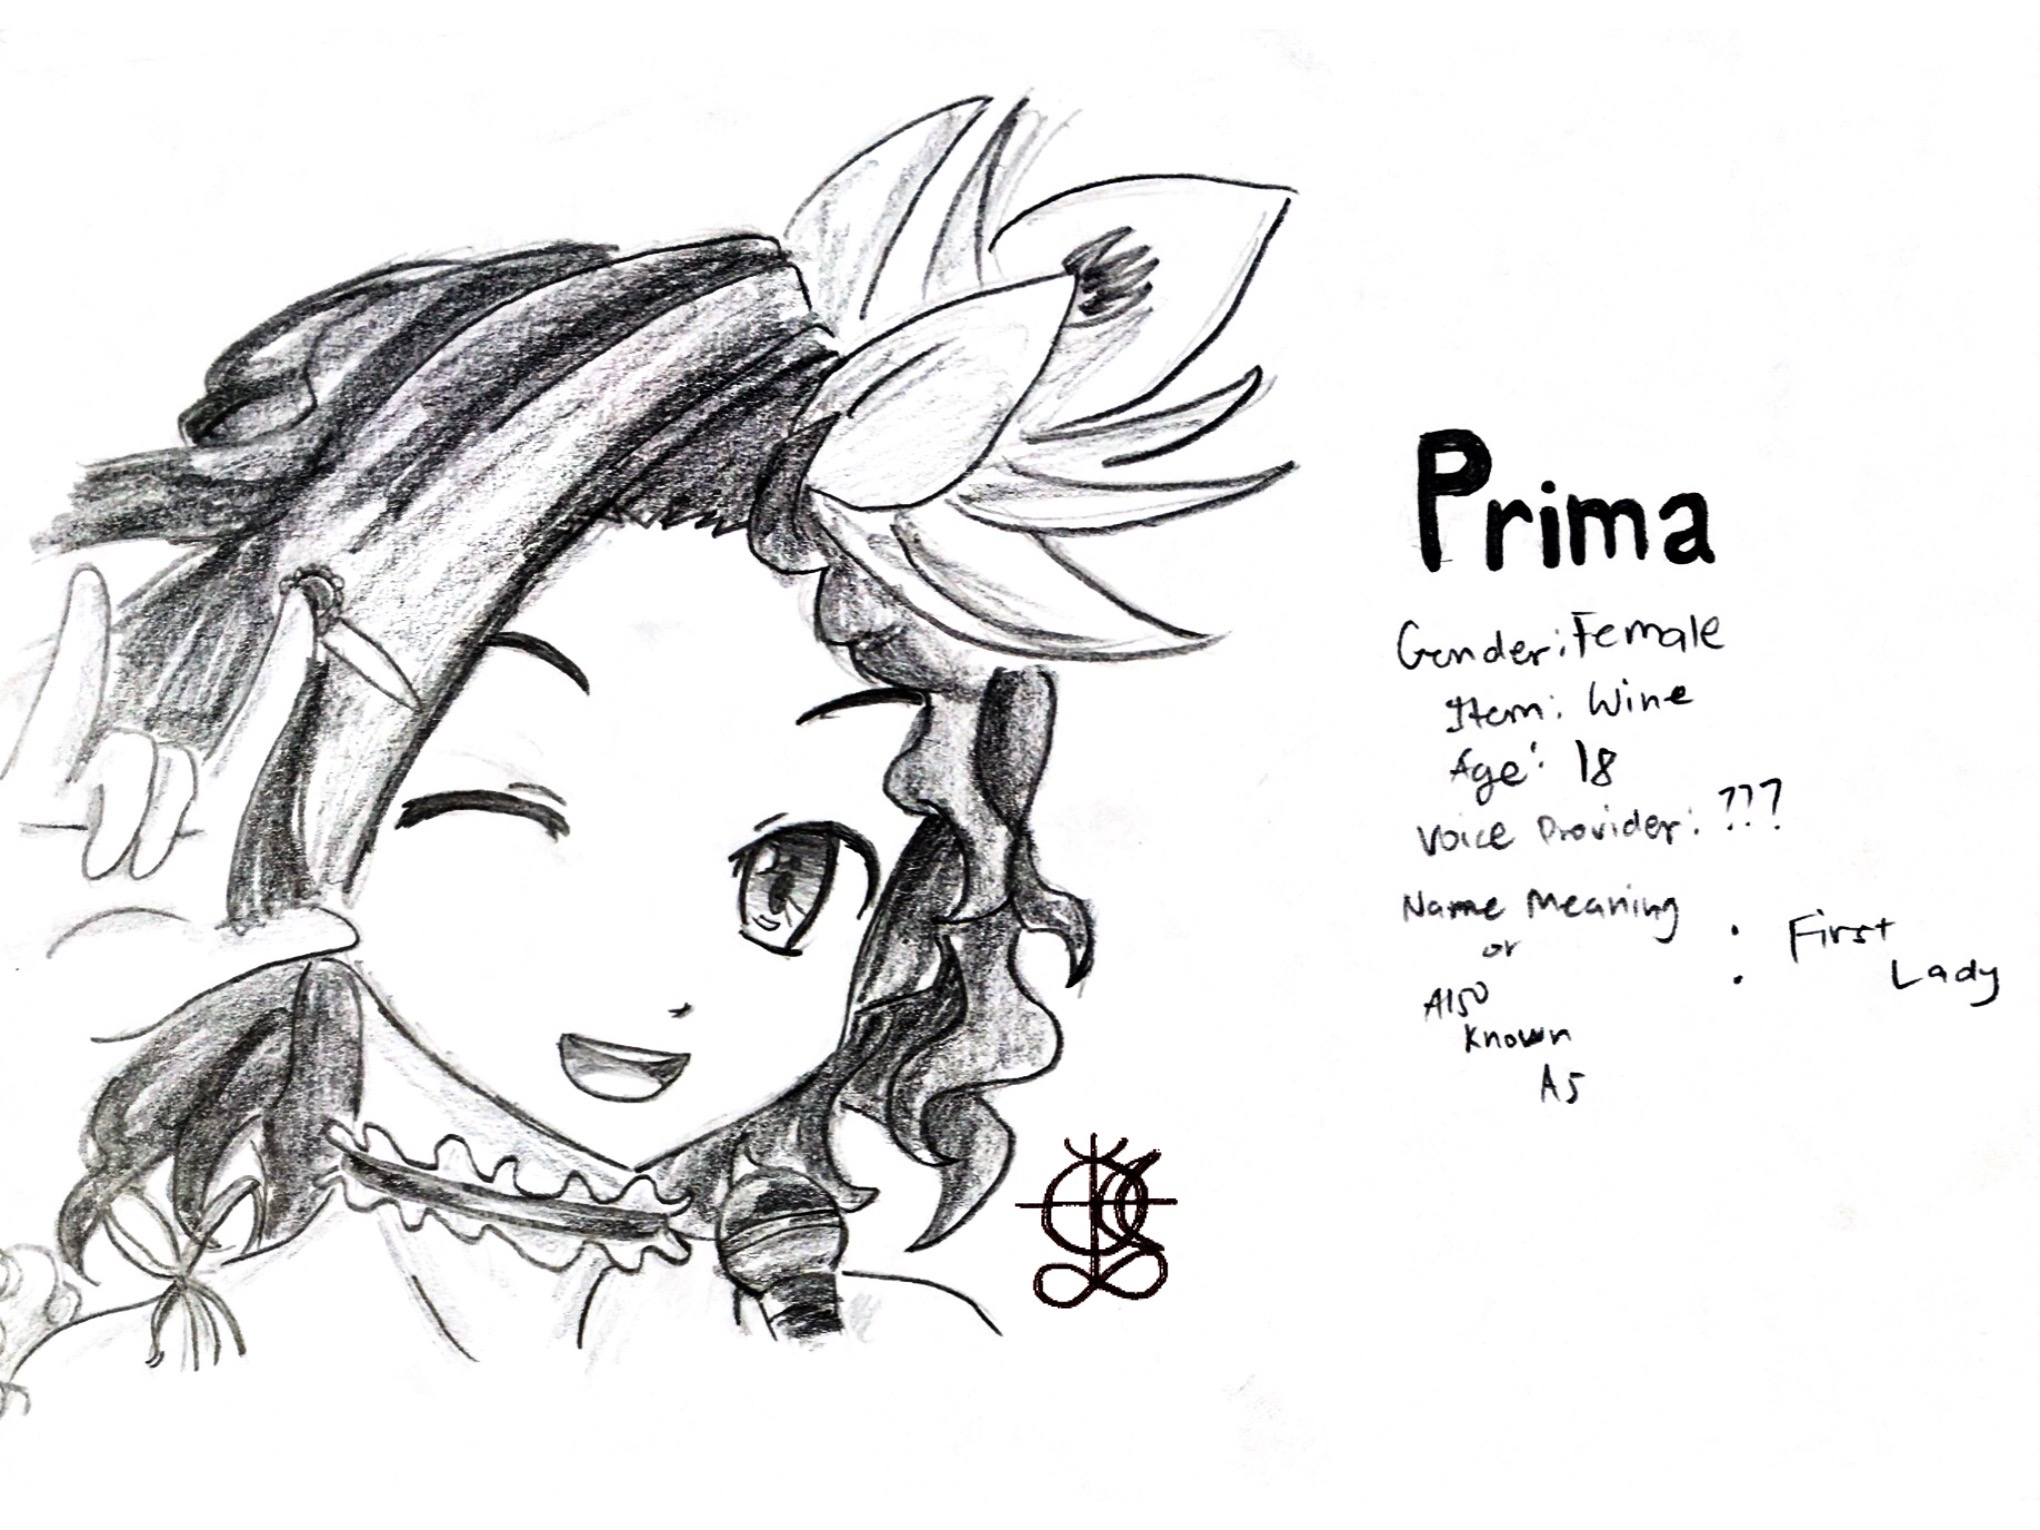 Prima
Gender: Female
Item: Wine
Age: 18
Voice Provider: ???
Name Meaning
or
Also
Known
As
: First
Lady